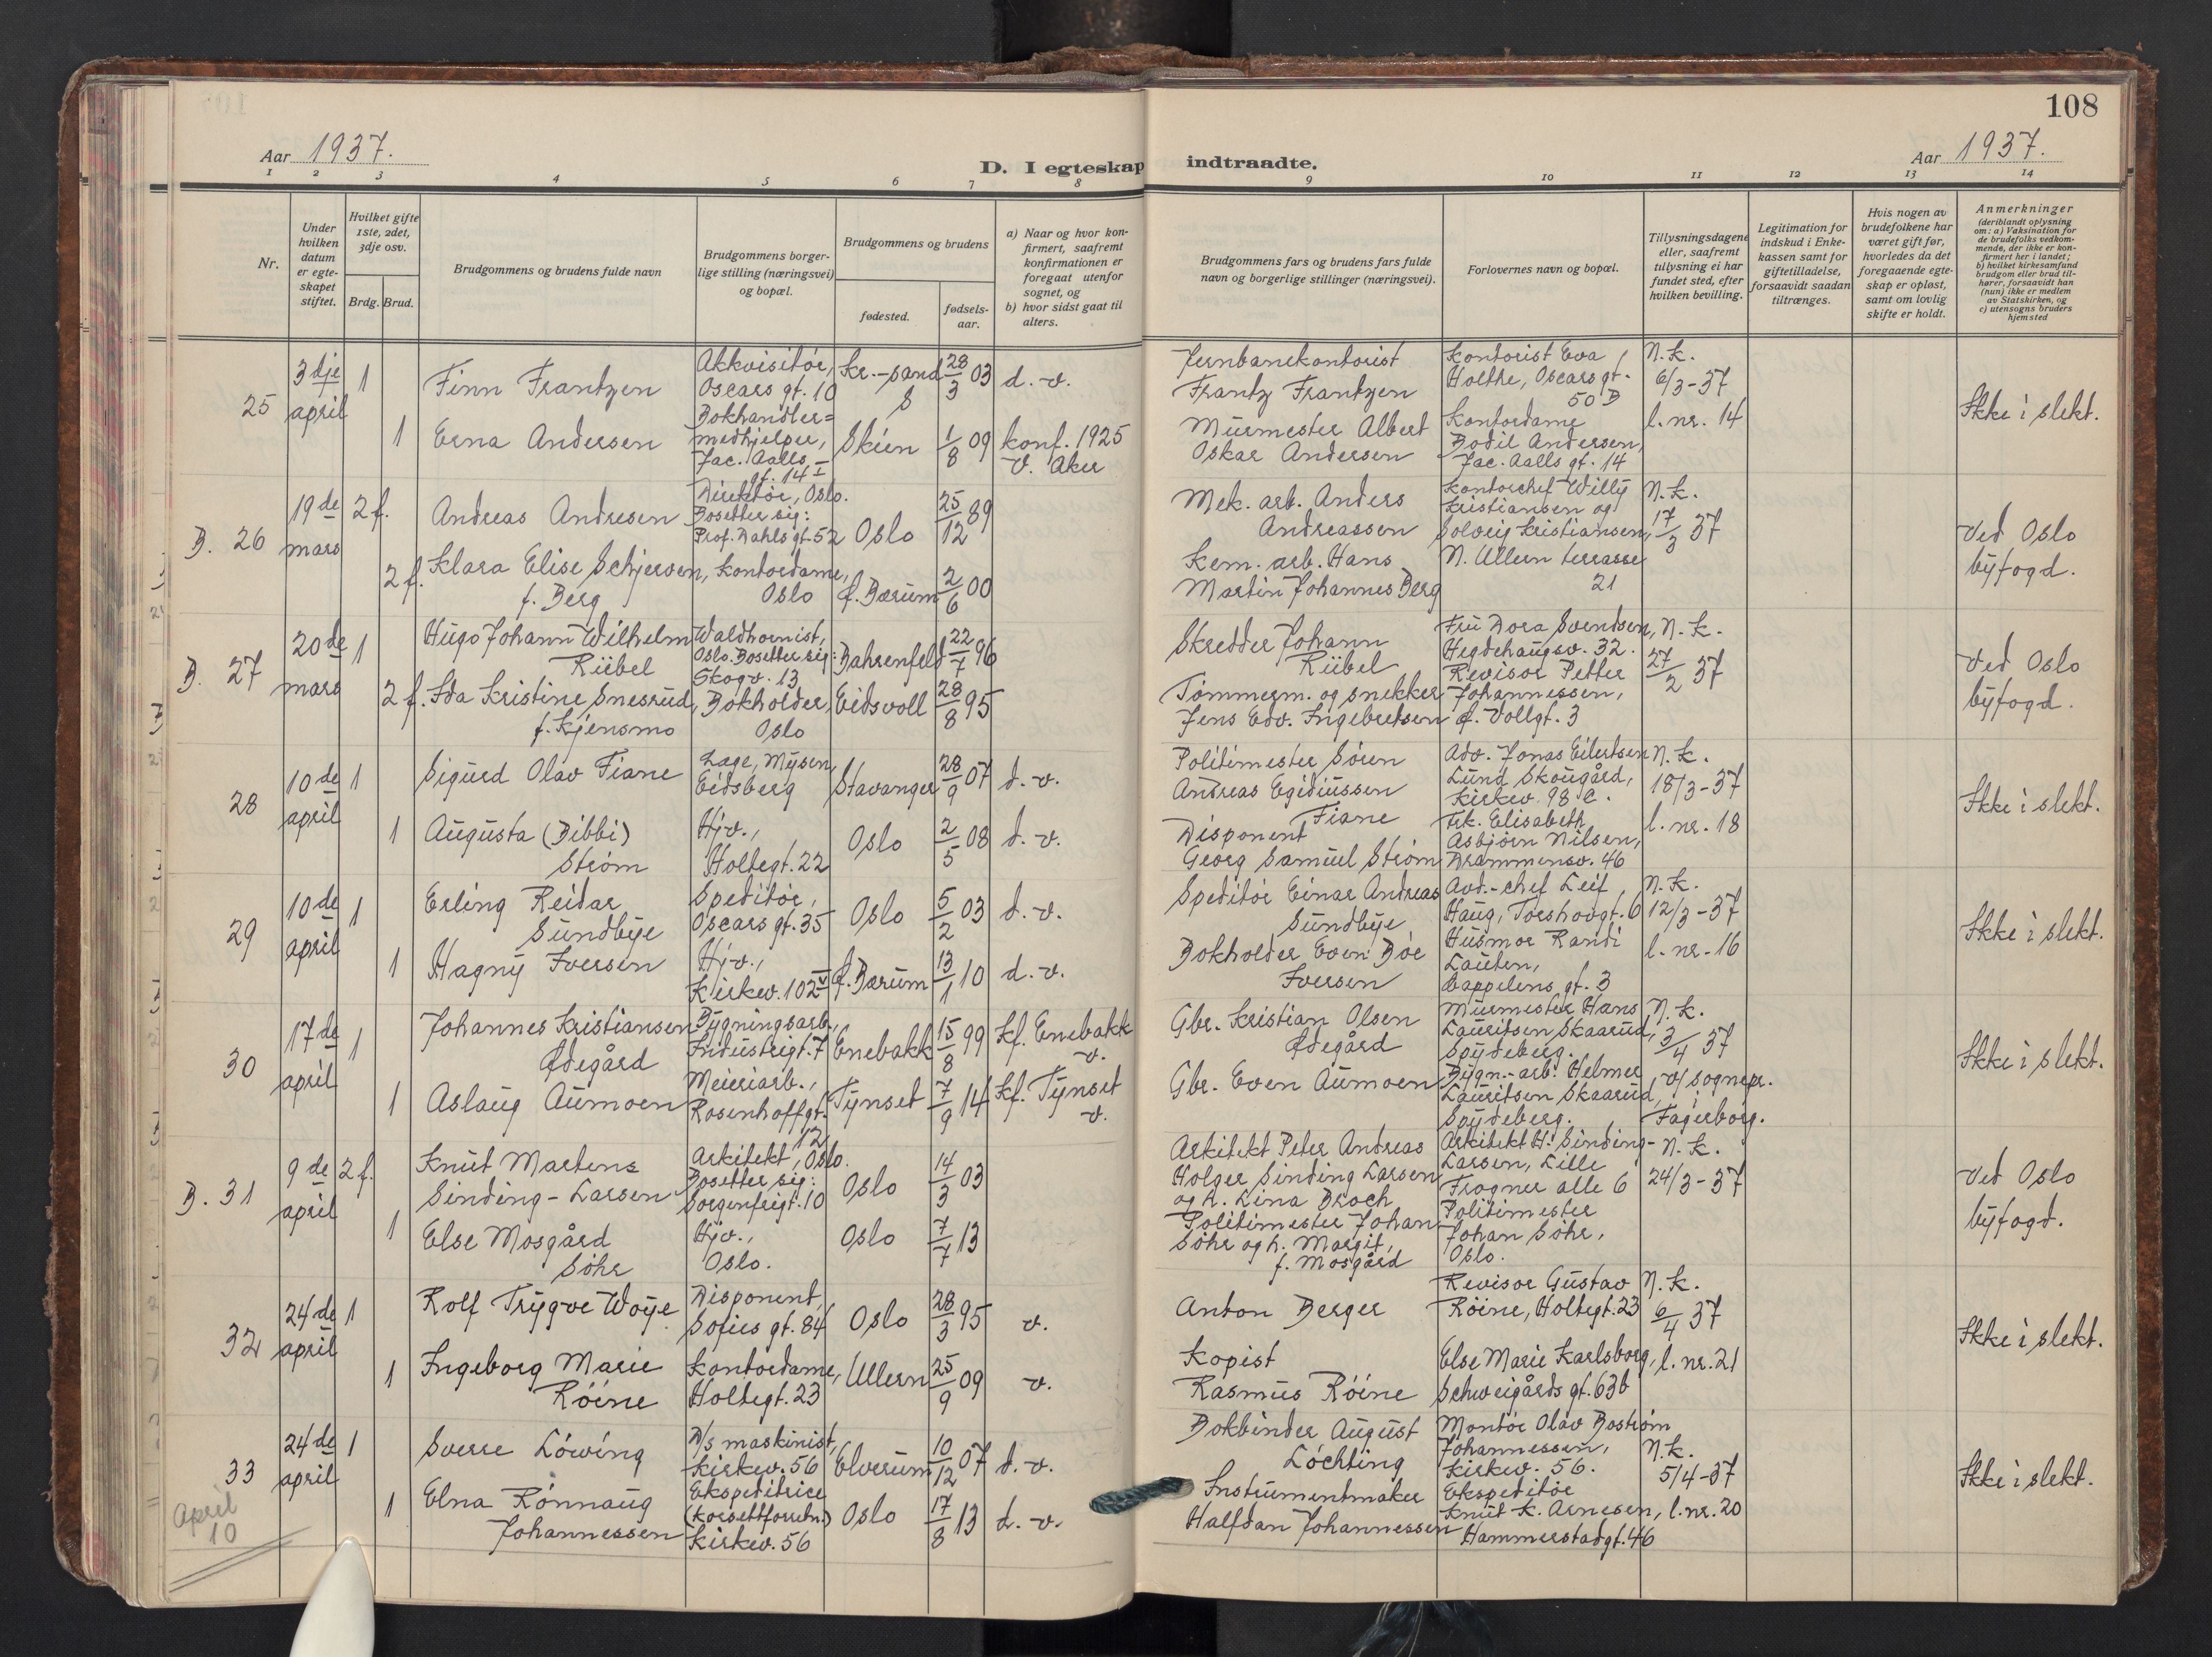 108
Aar 1937.
D. I egteskap indtraadte.
Aar 1937.
1 2 3 4 5 6 7 8 9 10 11 12 13 14
Nr.
Under
hvilken
datum
er egte-
skapet
stiftet.
Hvilket gifte
1ste, 2det,
3dje osv.
Brdg.
Brud.
Brudgommens og brudens fulde navn
Brudgommens borger-
lige stilling (næringsvei)
og bopæl.
Brudgommens og brudens
fødested.
fødsels-
aar.
a) Naar og hvor kon-
firmert, saafremt
konfirmationen er
foregaat utenfor
sognet, og
b) hvor sidst gaat til
alters.
Brudgommens fars og brudens fars fulde
navn og borgerlige stillinger (næringsvei).
Forlovernes navn og bopæl.
Tillysningsdagene
eller, saafremt
tillysning ei har
fundet sted, efter
hvilken bevilling.
Legitimation for
indskud i Enke-
kassen samt for
giftetilladelse,
forsaavidt saadan
tiltrænges.
Hvis nogen av
brudefolkene har
været gift før,
hvorledes da det
foregaaende egte-
skap er opløst,
samt om lovlig
skifte er holdt.
Anmerkninger
(deriblandt oplysning
om: a) Vaksination for
de brudefolks vedkom-
mende, der ikke er kon-
firmert her i landet;
b) hvilket kirkesamfund
brudgom eller brud til-
hører, forsaavidt han
(hun) ikke er medlem
av Statskirken, og
c) utensogns bruders
hjemsted
25
3dje
april
1
Finn Frantzen
Akkvisitør,
Oscars gt. 10
Kr.-sand
S
28/3 03
d. v.
Jernbanekontorist
Frantz Frantzen
Kontorist Eva
Holthe, Oscars gt.
50 B
N. K.
6/3-37
l. nr. 14
Ikke i slekt.
1
Erna Andersen
Bokhandler=
medhjelper,
Jac. Aalls
gt. 14 I
Skien
1/8 09
konf. 1925
V. Aker
Murmester Albert
Oskar Andersen
Kontordame
Bodil Andersen,
Jac. Aalls gt. 14
B. 26
19de
mars
2 f.
Andreas Andresen
Direktør, Oslo.
Bosetter sig:
Prof. Dahls gt. 52
Oslo
25/12 89
Mek. arb. Anders
Andreassen
Kontorchef Willy
Kristiansen og
Solveig Kristiansen,
N. Ullern terrasse
21
N. K.
17/3 37
Ved Oslo
byfogd.
2 f.
Klara Elise Schjersen,
f. Berg
Kontordame,
Oslo
Ø. Bærum
2/6 00
Kem. arb. Hans
Martin Johannes Berg
B. 27
20de
mars
1
Hugo Johann Wilhelm
Rübel
Waldhornist,
Oslo. Bosetter sig:
Skogv. 13
Bahrenfeld
22/7 96
Skredder Johann
Rübel
Fru Dora Svendsen,
Hegdehaugsv. 32.
Revisor Petter
Johannessen,
Ø. Vollgt. 3
N. K.
27/2 37
Ved Oslo
byfogd.
2 f.
Ida Kristine Snesrud,
f. Kjensmo
Bokholder,
Oslo
Eidsvoll
28/8 95
Tømmerm. og snekker
Jens Edv. Ingebretsen
28
10de
april
1
Sigurd Olav Fiane
Læge, Mysen,
Eidsberg
Stavanger
28/9 07
d. v.
Politimester Sören
Andreas Egidiussen
Fiane
Adv. Jonas Eilertsen
Lund Skougård,
Kirkev. 98 C.
N. K.
18/3-37
l. nr. 18
Ikke i slekt.
1
Augusta (Bibbi)
Strøm
Hjv.,
Holtegt. 22
Oslo
2/5 08
d. v.
Disponent
Georg Samuel Strøm
Frk. Elisabeth
Asbjørn Nilsen,
Drammensv. 46
29
10de
april
1
Erling Reidar
Sundbye
Speditør,
Oscars gt. 35
Oslo
5/2 03
d. v.
Speditør Einar Andreas
Sundbye
Avd.-chef Leif
Haug, Torshovgt. 6
N. K.
12/3-37
l. nr. 16
Ikke i slekt.
1
Hagny Iversen
Hjv.,
Kirkev. 102 V
Ø. Bærum
13/1 10
d. v.
Bokholder Even Böe
Iversen
Husmor Randi
Lauten,
Cappelens gt. 3
30
17de
april
1
Johannes Kristiansen
Ødegård
Bygningsarb.,
Industrigt. 7
Enebakk
15/8 99
Kf. Enebakk
v.
Gbr. Kristian Olsen
Ødegård
Murmester Hans
Lauritsen Skaarud,
Spydeberg.
N. K.
3/4 37
v/ sognepr.
i
Fagerborg.
Ikke i slekt.
1
Aslaug Aumoen
Meieriarb.,
Rosenhoffgt.
12
Tynset
7/9 14
Kf. Tynset
v.
Gbr. Even Aumoen
Bygn.-arb. Helmer
Lauritsen Skaarud,
Spydeberg.
B. 31
9de
april
2 f.
Knut Martens
Sinding-Larsen
Arkitekt, Oslo.
Bosetter sig:
Sorgenfrigt. 10
Oslo
14/3 03
Arkitekt Peter Andreas
Holger Sinding Larsen
og h. Lina Broch
Arkitekt H. Sinding-
Larsen, Lille
Frogner alle 6
N. K.
24/3-37
Ved Oslo
byfogd.
1
Else Mosgård
Söhr
Hjv.,
Oslo.
Oslo
7/7 13
Politimester Johan
Söhr og h. Margit,
f. Mosgård
Politimester
Johan Söhr,
Oslo.
32
24de
april
1
Rolf Trygve Woye
Disponent,
Sofies gt. 84
Oslo
28/3 95
v.
Anton Berger
Revisor Gustav
Röine, Holtegt. 23
N. K.
6/4 37
l. nr. 21
Ikke i slekt.
1
Ingeborg Marie
Röine
Kontordame,
Holtegt. 23
Ullern
25/9 09
v.
Kopist
Rasmus Röine
Else Marie Karlsborg,
Schweigårds gt. 63b
33
24de
april
1
Sverre Löwing
D/s maskinist,
Kirkev. 56
Elverum
10/12 07
d. v.
Bokbinder August
Löchting
Montör Olav Boström
Johannessen,
Kirkev. 56.
N. K.
5/4-37
l. nr. 20
Ikke i slekt.
1
Elna Rönnaug
Johannessen
Ekspeditrice
(korsettforretn.)
Kirkev. 56
Oslo
17/8 13
d. v.
Instrumentmaker
Halfdan Johannessen
Ekspeditör
Knut K. Arnesen,
Hammerstadgt. 46
April
10